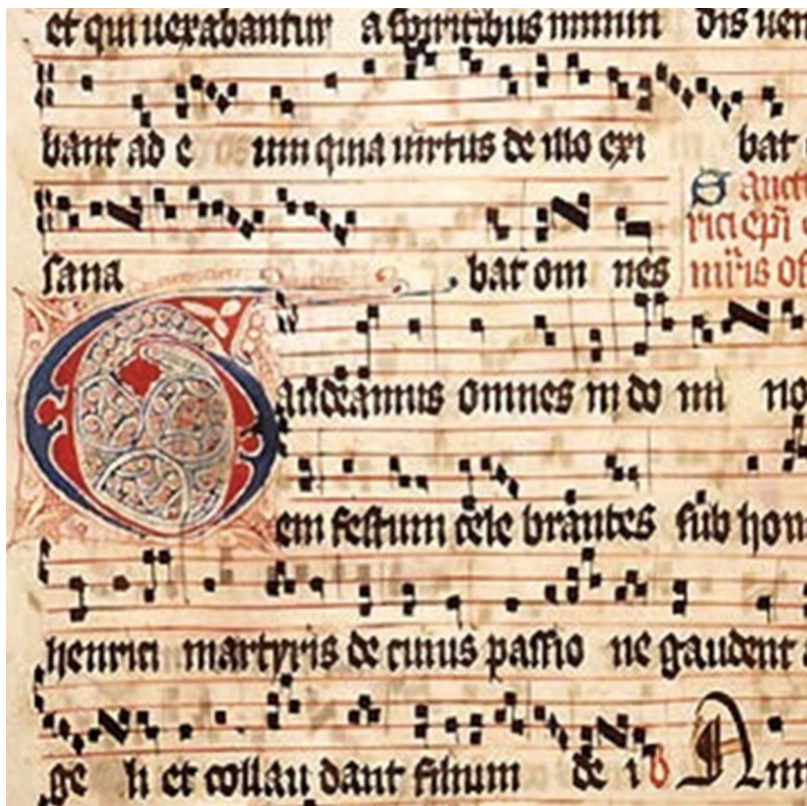 et qui uexabantur a spiritibus inmun dis uen
bant ad e um quia uirtus de illo exi bat
sana bat om nes
Sanct
rici epi
mr̄is of
Gaudeamus omnes in do mi no
em festum cele brantes sub hon
henrici martyris de cuius passio ne gaudent a
ge li et collau dant filium de i